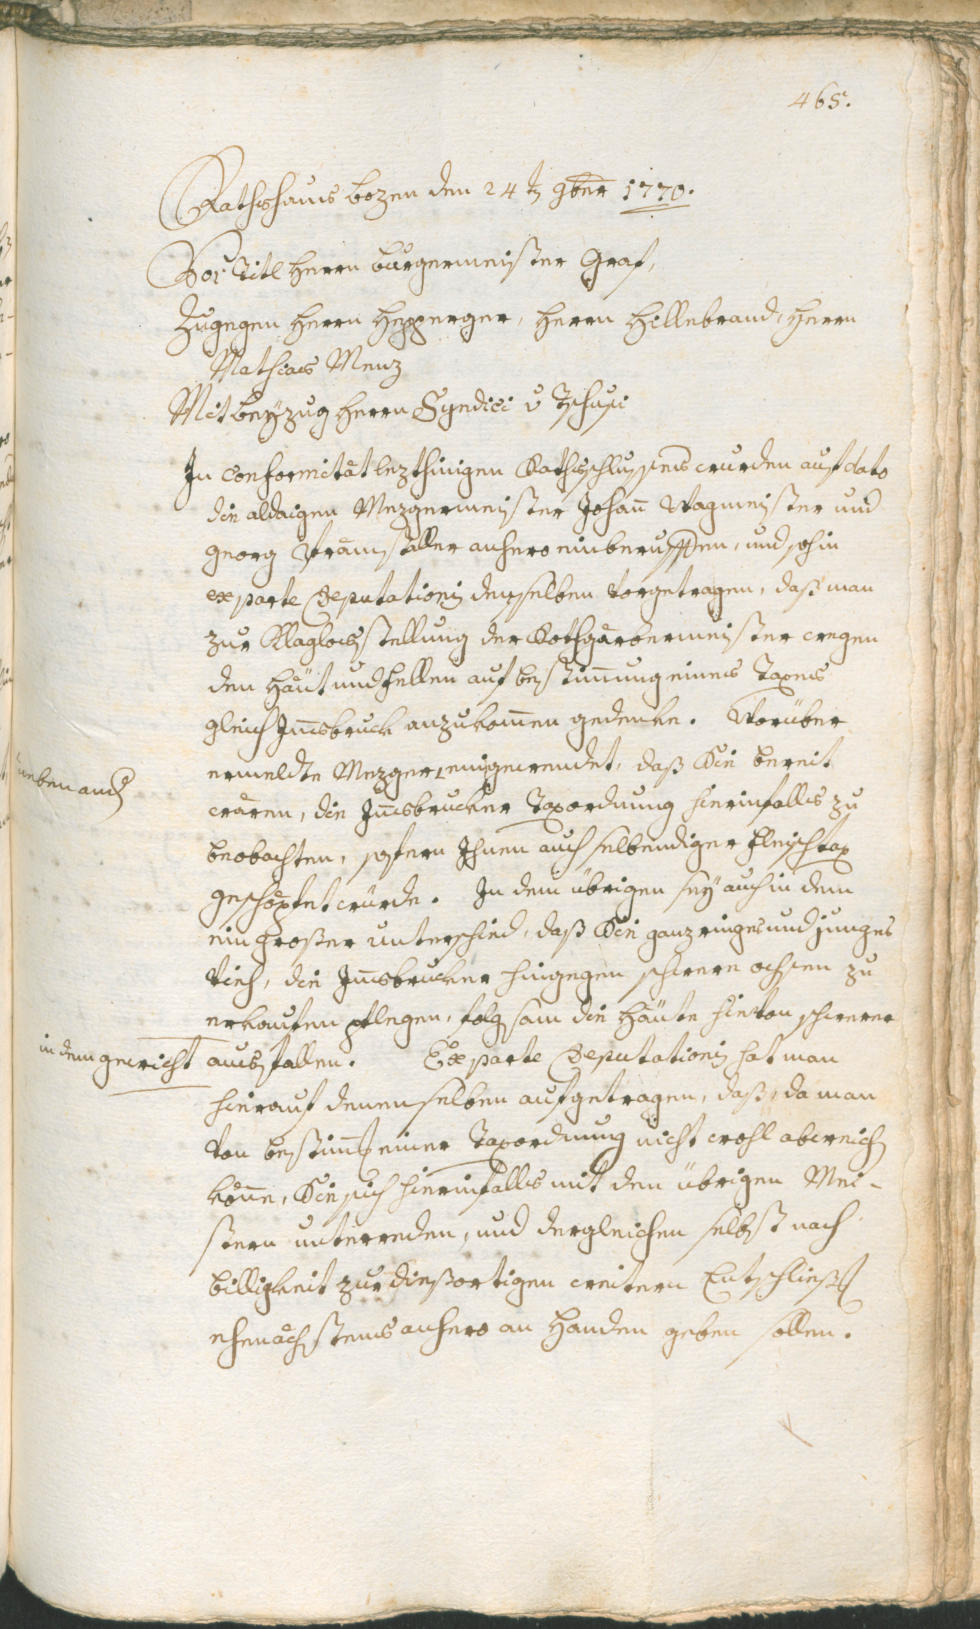 465.
Rathshaus bozen den 24 t 9ber 1770.
Vor Titl Herrn burgermeister Graf,
Zugegen Herrn Hepperger, Herrn Hillebrand, Herrn
Mathias Menz
Mit beyzug Herrn Syndici v Tschusi
In Conformität lezthinigen Rathsschlusses wurden auf dato
die aldaigen Mezgermeister Johann Wagmeister und
Georg Stramstaller anhero einberuffen, und sohin
ex parte Deputationis denselben vorgetragen, daß man
zur Klaglosstellung der Rothgärbermeister wegen
den Häut und fellen auf bestimung eines Taxes
gleich Insbruck anzukomen gedenke. Worüber
ermeldte Mezger eingewendet, daß Sie bereit
neben and
wären, die Insbrucker Taxordnung hierinfalls zu
beobachten, sofern Ihnen auch selbendiger fleischtax
geschöpfet würde. In dem übrigen sey auch in dem
ein großer unterschied, daß Sie ganz ringes und junges
Vieh, die Insbrucker hingegen schwere ochsen zu
erkaufen pflegen, folgsam die Häute hievon schwerer
in dem gewicht
ausfallen. Ex parte Deputationis hat man
hierauf denenselben aufgetragen, daß, da man
von bestimt einer Taxordnung nicht wohl abweich
könne, Sie sich hierinfalls mit den übrigen Mei-
stern unterreden, und dergleichen selbst nach
billigkeit zur dießortigen weitern Entschließ
ehenächstens anhero an Handen geben sollen.